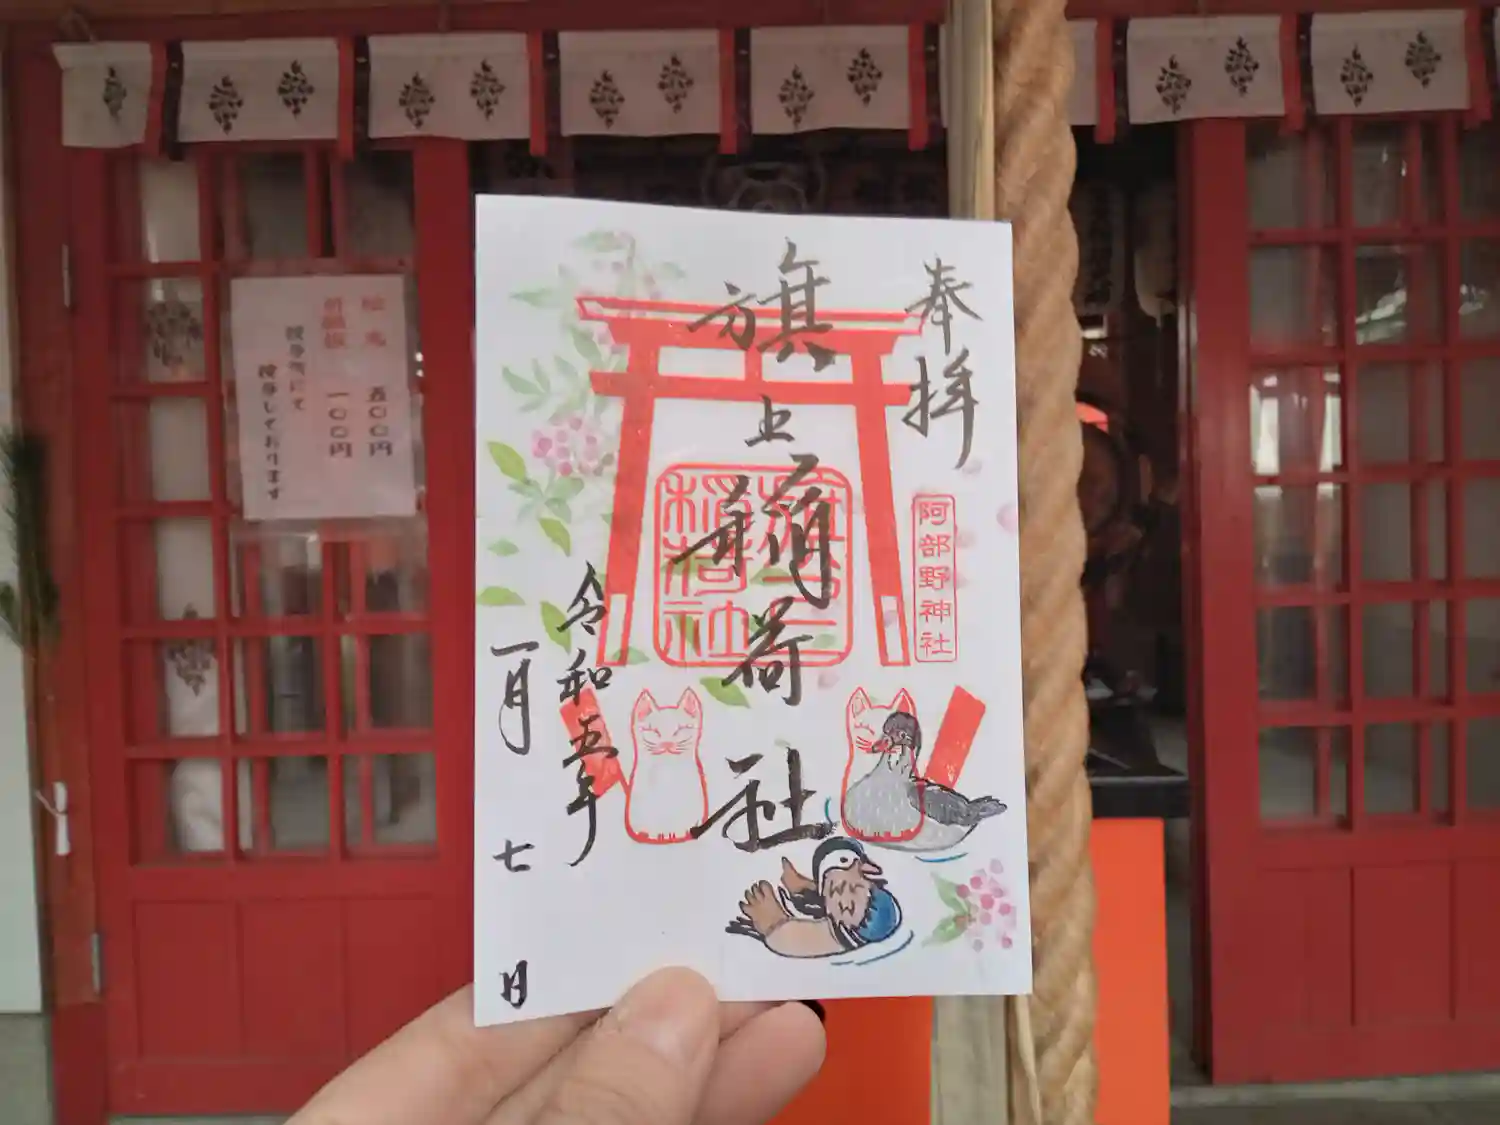 奉拝
阿部野神社
旗上稲荷社
旗上稲荷社
令和五年
一月七日
絵馬 五〇〇円
祈願板 一〇〇円
授与所にて
授与しております